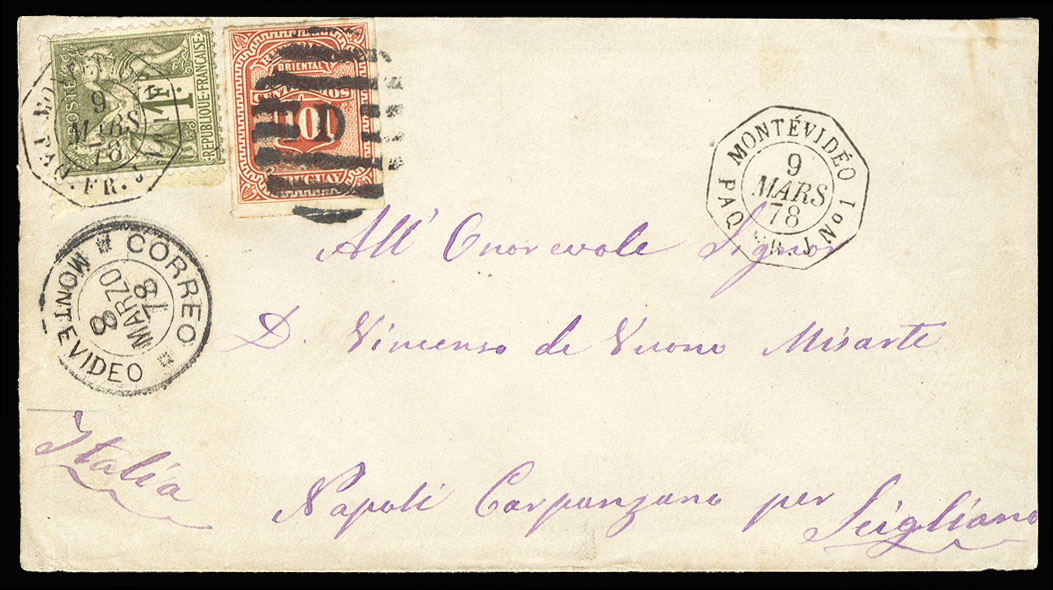 POSTE
1 F
REPUBLIQUE FRANÇAISE
9
MARS
78
PAQ. FR. J
ORIENTAL
CENTESIMOS
10
URUGUAY
MONTÉVIDÉO
PAQ. FR. J No 1
9
MARS
78
CORREO
MONTEVIDEO
8
MARZO
78
All' Onorevole Signor
D. Vincenso de Vuono Misarte
Italia
Napoli Carpanzano per Scigliano